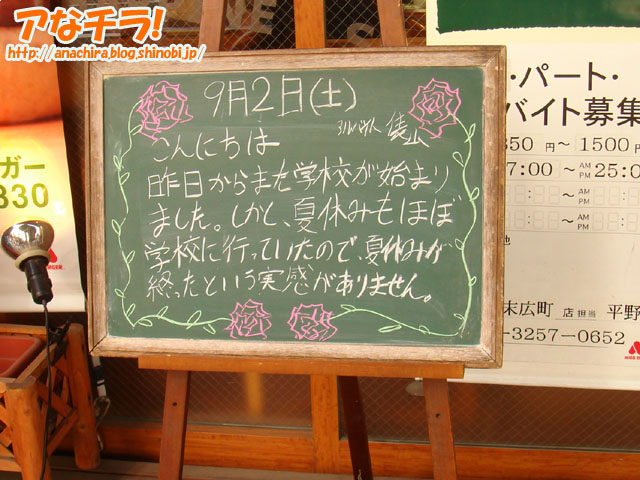 アなチラ!
http://anachira.blog.shinobi.jp/
9月2日(土)
アルバイト
こんにちは
昨日からまた学校が始まり
ました。しかし、夏休みもほぼ
学校に行っていたので、夏休みが
終ったという実感がありません。
ガー
330
・パート・
バイト募集
850円〜1500円
7:00〜AM 25:00
〜AM PM
〜AM PM
地
末広町 店担当 平野
-3257-0652